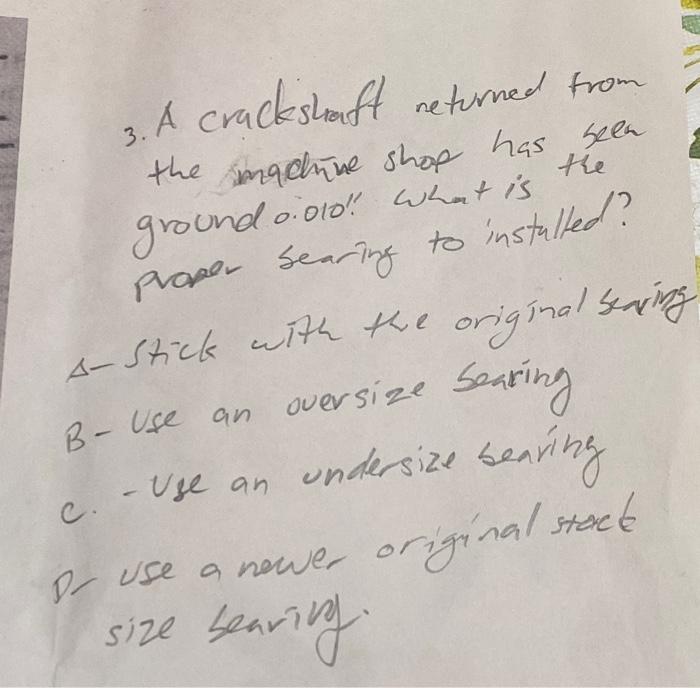 3. A crackshaft returned from
the machine shop has been
ground 0.010". What is the
proper bearing to installed?
A- Stick with the original bearing
B- Use an oversize bearing
C. - Use an undersize bearing
D- use a newer original stock
size bearing.